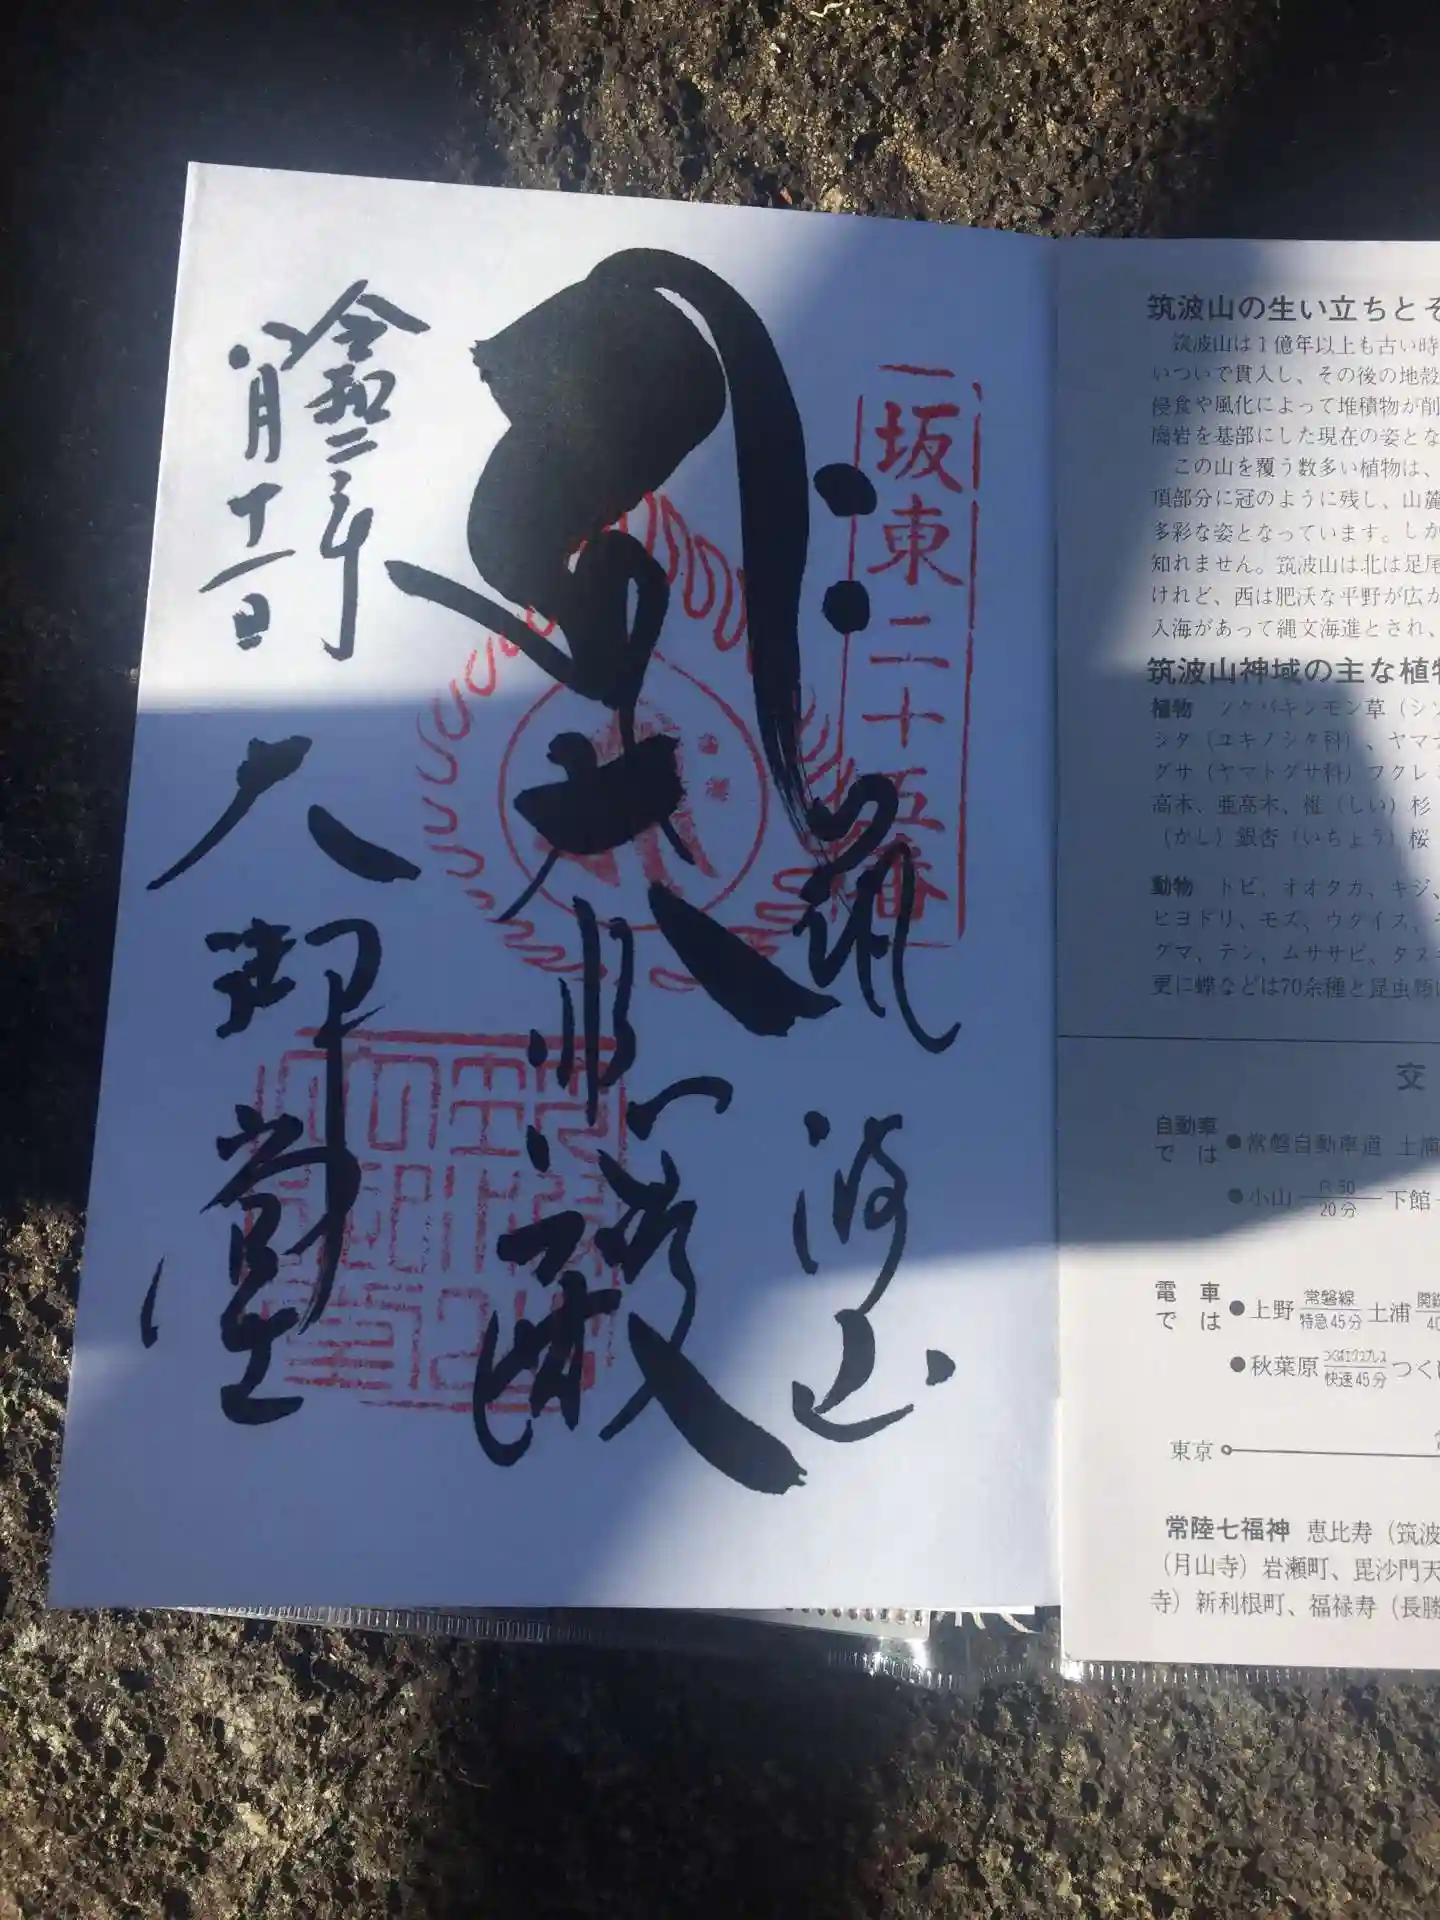 坂東二十五番
筑波山
大悲殿
大御堂
令和二年
八月十一日
筑波山の生い立ちとそ
筑波山は1億年以上も古い時
いついで貫入し、その後の地殻
侵食や風化によって堆積物が削
岩を基部にした現在の姿とな
この山を覆う数多い植物は、
頂部分に冠のように残し、山麓
多彩な姿となっています。しか
知れません。筑波山は北は足尾
けれど、西は肥沃な平野が広が
入海があって縄文海進とされ、
筑波山神域の主な植物
植物 ツクバキンモン草(シソ
シタ(ユキノシタ科)、ヤマナ
グサ(ヤマトグサ科)フクレ
高木、亜高木、椎(しい)杉
(かし)銀杏(いちょう)桜
動物 トビ、オオタカ、キジ、
ヒヨドリ、モズ、ウグイス、
グマ、テン、ムササビ、タヌキ
更に蝶などは70余種と昆虫類
交
自動車では
●常磐自動車道 土浦
●小山 R50 20分 下館
電車では
●上野 常磐線 特急45分 土浦 関鉄 40
●秋葉原 つくばエクスプレス 快速45分 つくば
東京
常陸七福神 恵比寿(筑波
(月山寺)岩瀬町、毘沙門天
寺)新利根町、福禄寿(長勝